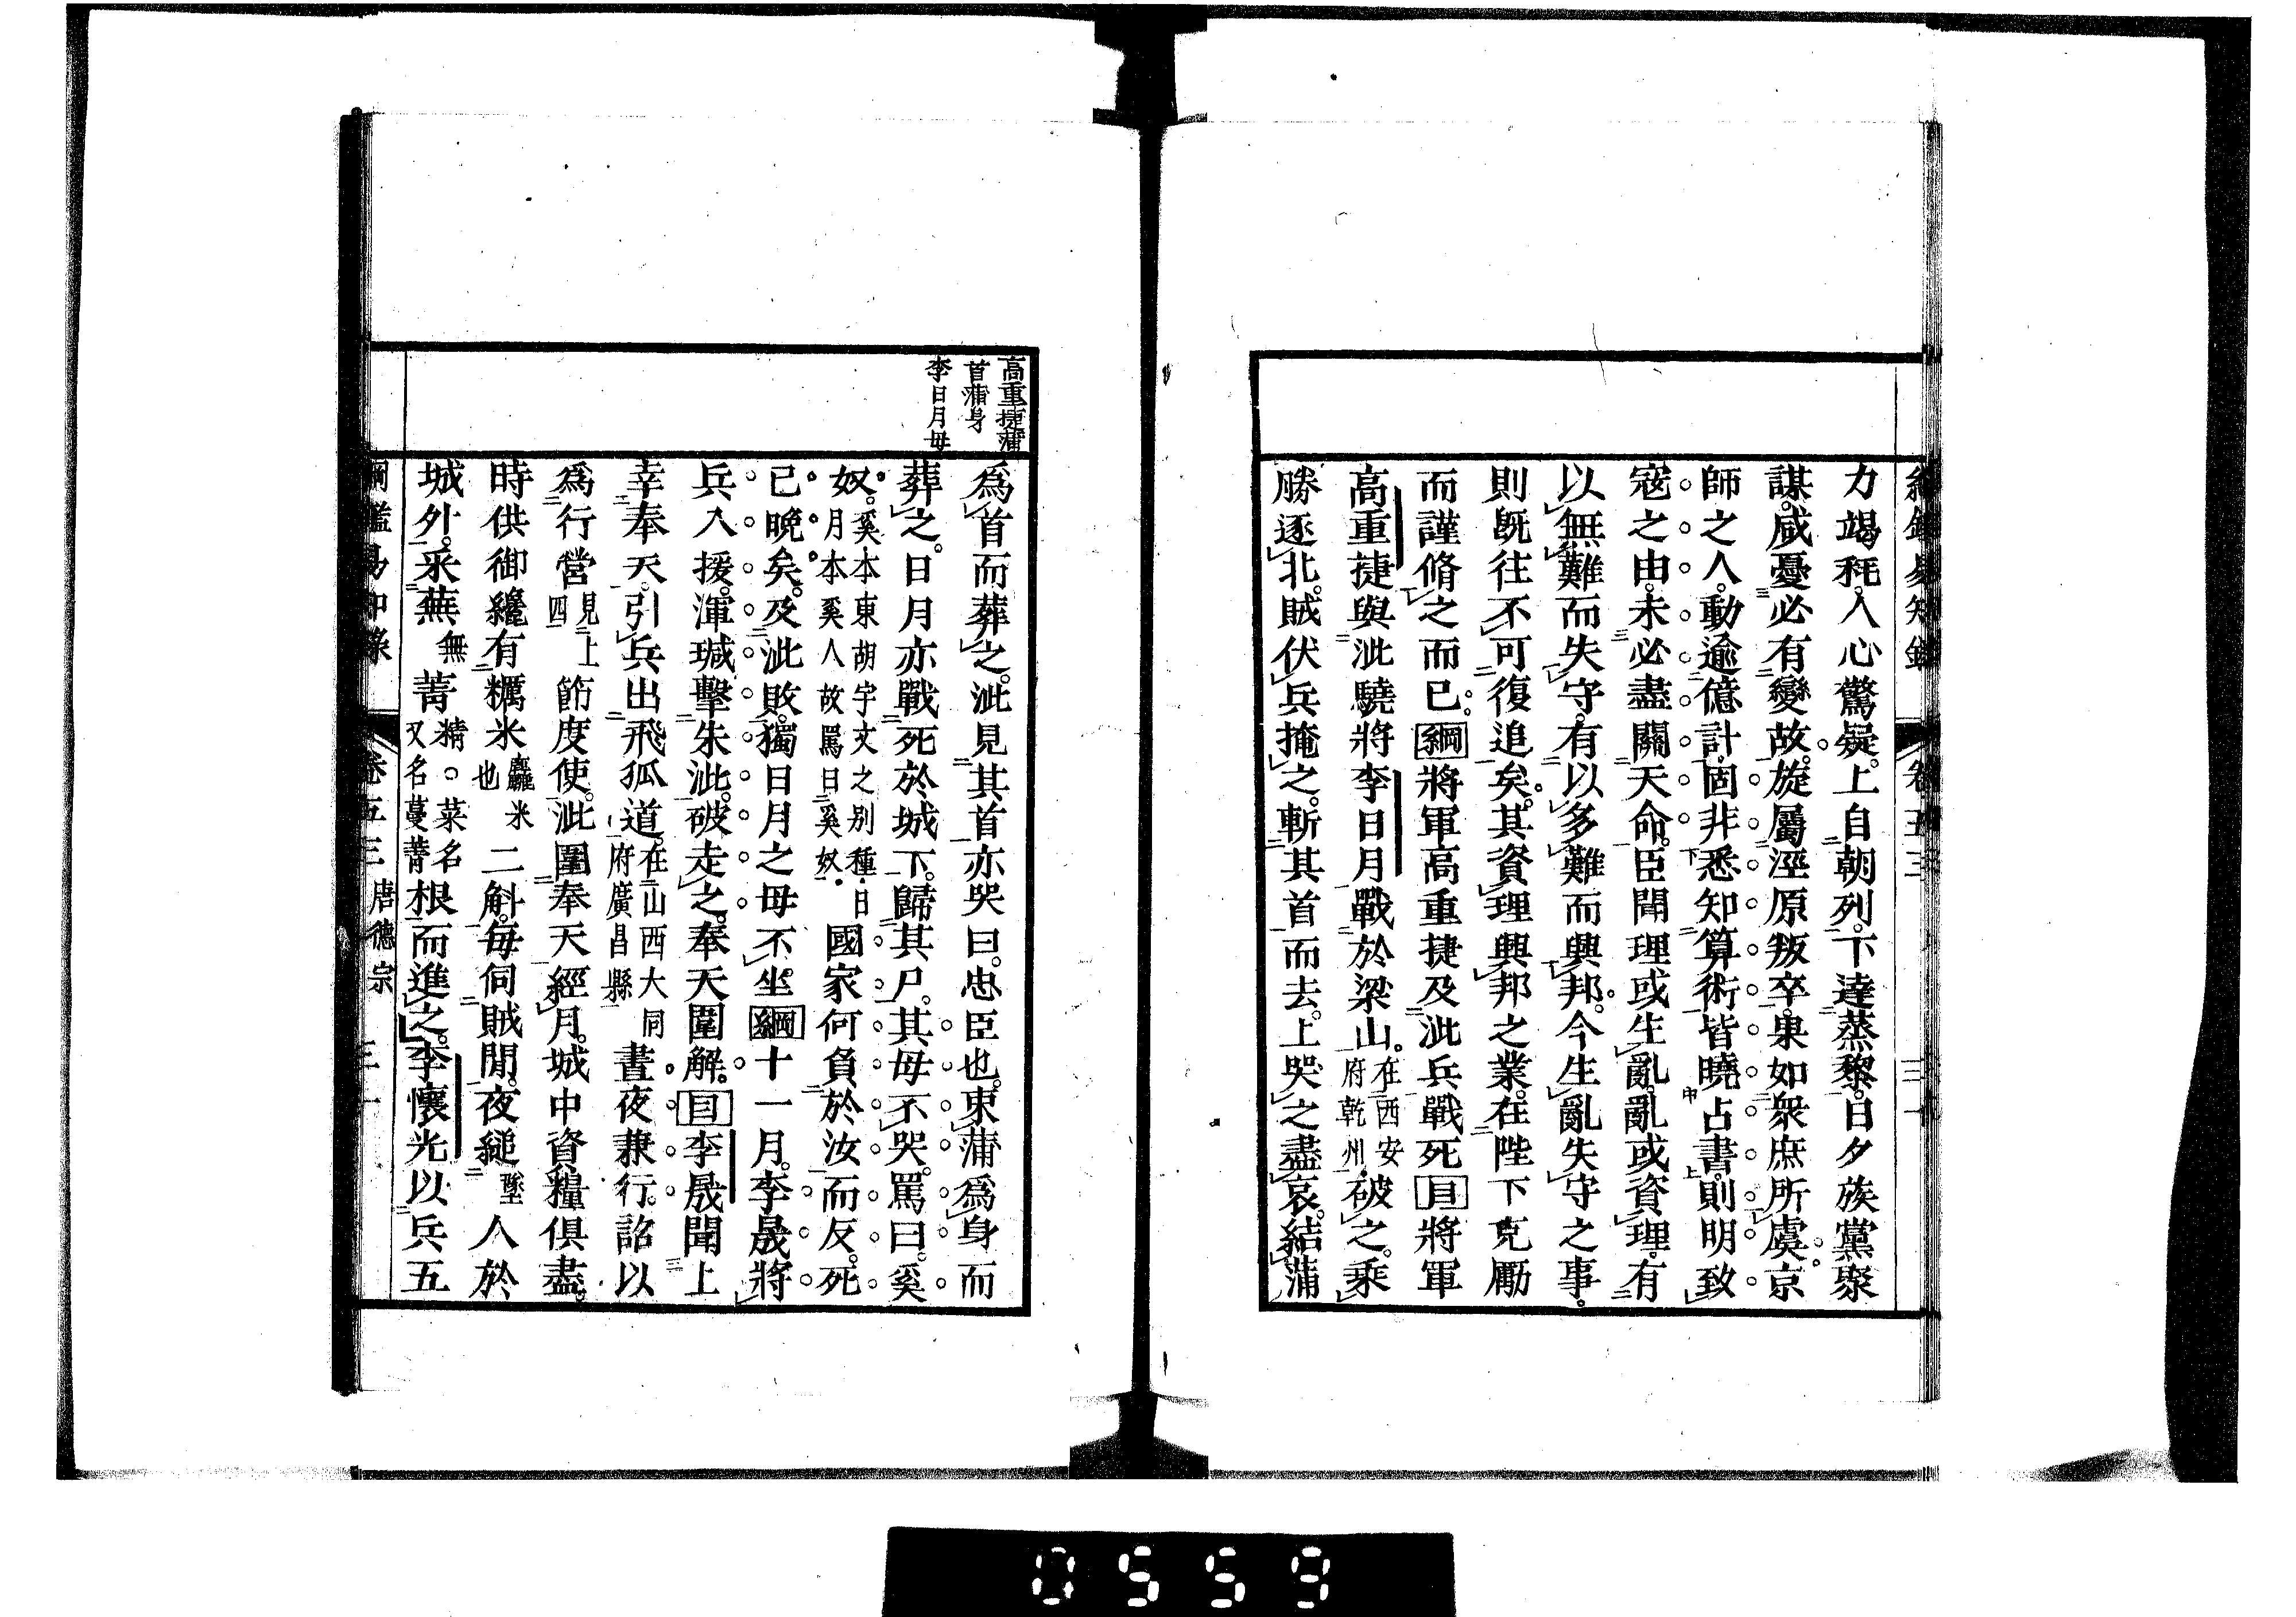 綱鑑易知錄 卷五三 三十
力竭秏。人心驚疑。上自朝列。下達蒸黎。日夕族黨聚
謀。咸憂必有變故。旋屬涇原叛卒。果如衆庶所虞。京
師之人。動逾億計。固非悉知算術。皆曉占書。則明致
寇之由。未必盡關天命。臣聞理或生亂。亂或資理。有
以無難而失守。有以多難而興邦。今生亂失守之事。
則旣往不可復追矣。其資理興邦之業。在陛下克勵
而謹脩之而已。綱將軍高重捷及泚兵戰死目將軍
高重捷與泚驍將李日月戰於梁山。在西安府乾州。破之。乘
勝逐北。賊伏兵掩之。斬其首而去。上哭之盡哀。結蒲
高重捷蒲
首蒲身
李日月母
爲首而葬之。泚見其首亦哭曰。忠臣也。束蒲爲身而
葬之。日月亦戰死於城下。歸其尸。其母不哭。罵曰。奚
奴。奚本東胡宇文之別種。日月本奚人故罵曰奚奴。國家何負於汝而反。死
已晚矣。及泚敗。獨日月之母不坐綱十一月。李晟將
兵入援。渾瑊擊朱泚。破走之。奉天圍解。目李晟聞上
幸奉天。引兵出飛狐道。在山西大同府廣昌縣晝夜兼行。詔以
爲行營見上四節度使。泚圍奉天經月。城中資糧俱盡。
時供御纔有糲米麤米也二斛。每伺賊閒。夜縋墜人於
城外。采蕪無菁精。菜名又名蔓菁根而進之。李懷光以兵五
綱鑑易知錄 卷五三 唐德宗 三十一
0559